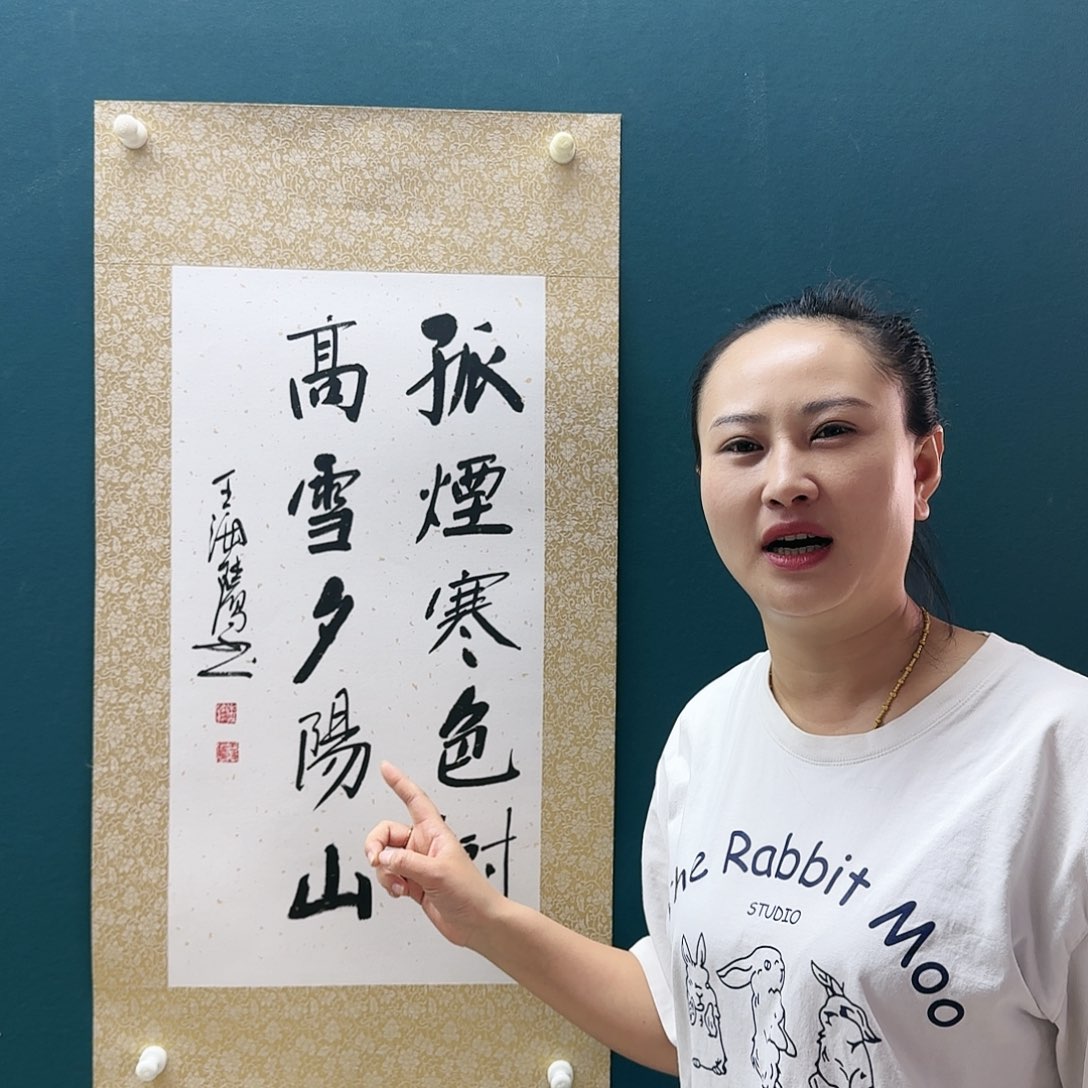 孤煙寒色
高雪夕陽山
王海陽书
he Rabbit Moo
STUDIO